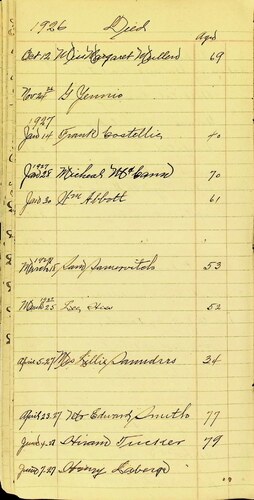 1926 Died Aged
Oct 12 Miss Margaret Mullen 69
Nov 24th G Jennie
1927
Jan 14 Frank Costellie 40
1927
Jan 28 Micheal McCann 70
Jan 30 Wm Abbott 61
1927
March 18 Sam 53
1927
March 25 52
April 5-27 Mrs Lillie Saunders 34
April 23-27 Mr Edward Smith 77
June 4-27 Hiram Tucker 79
June 7-27 Henry